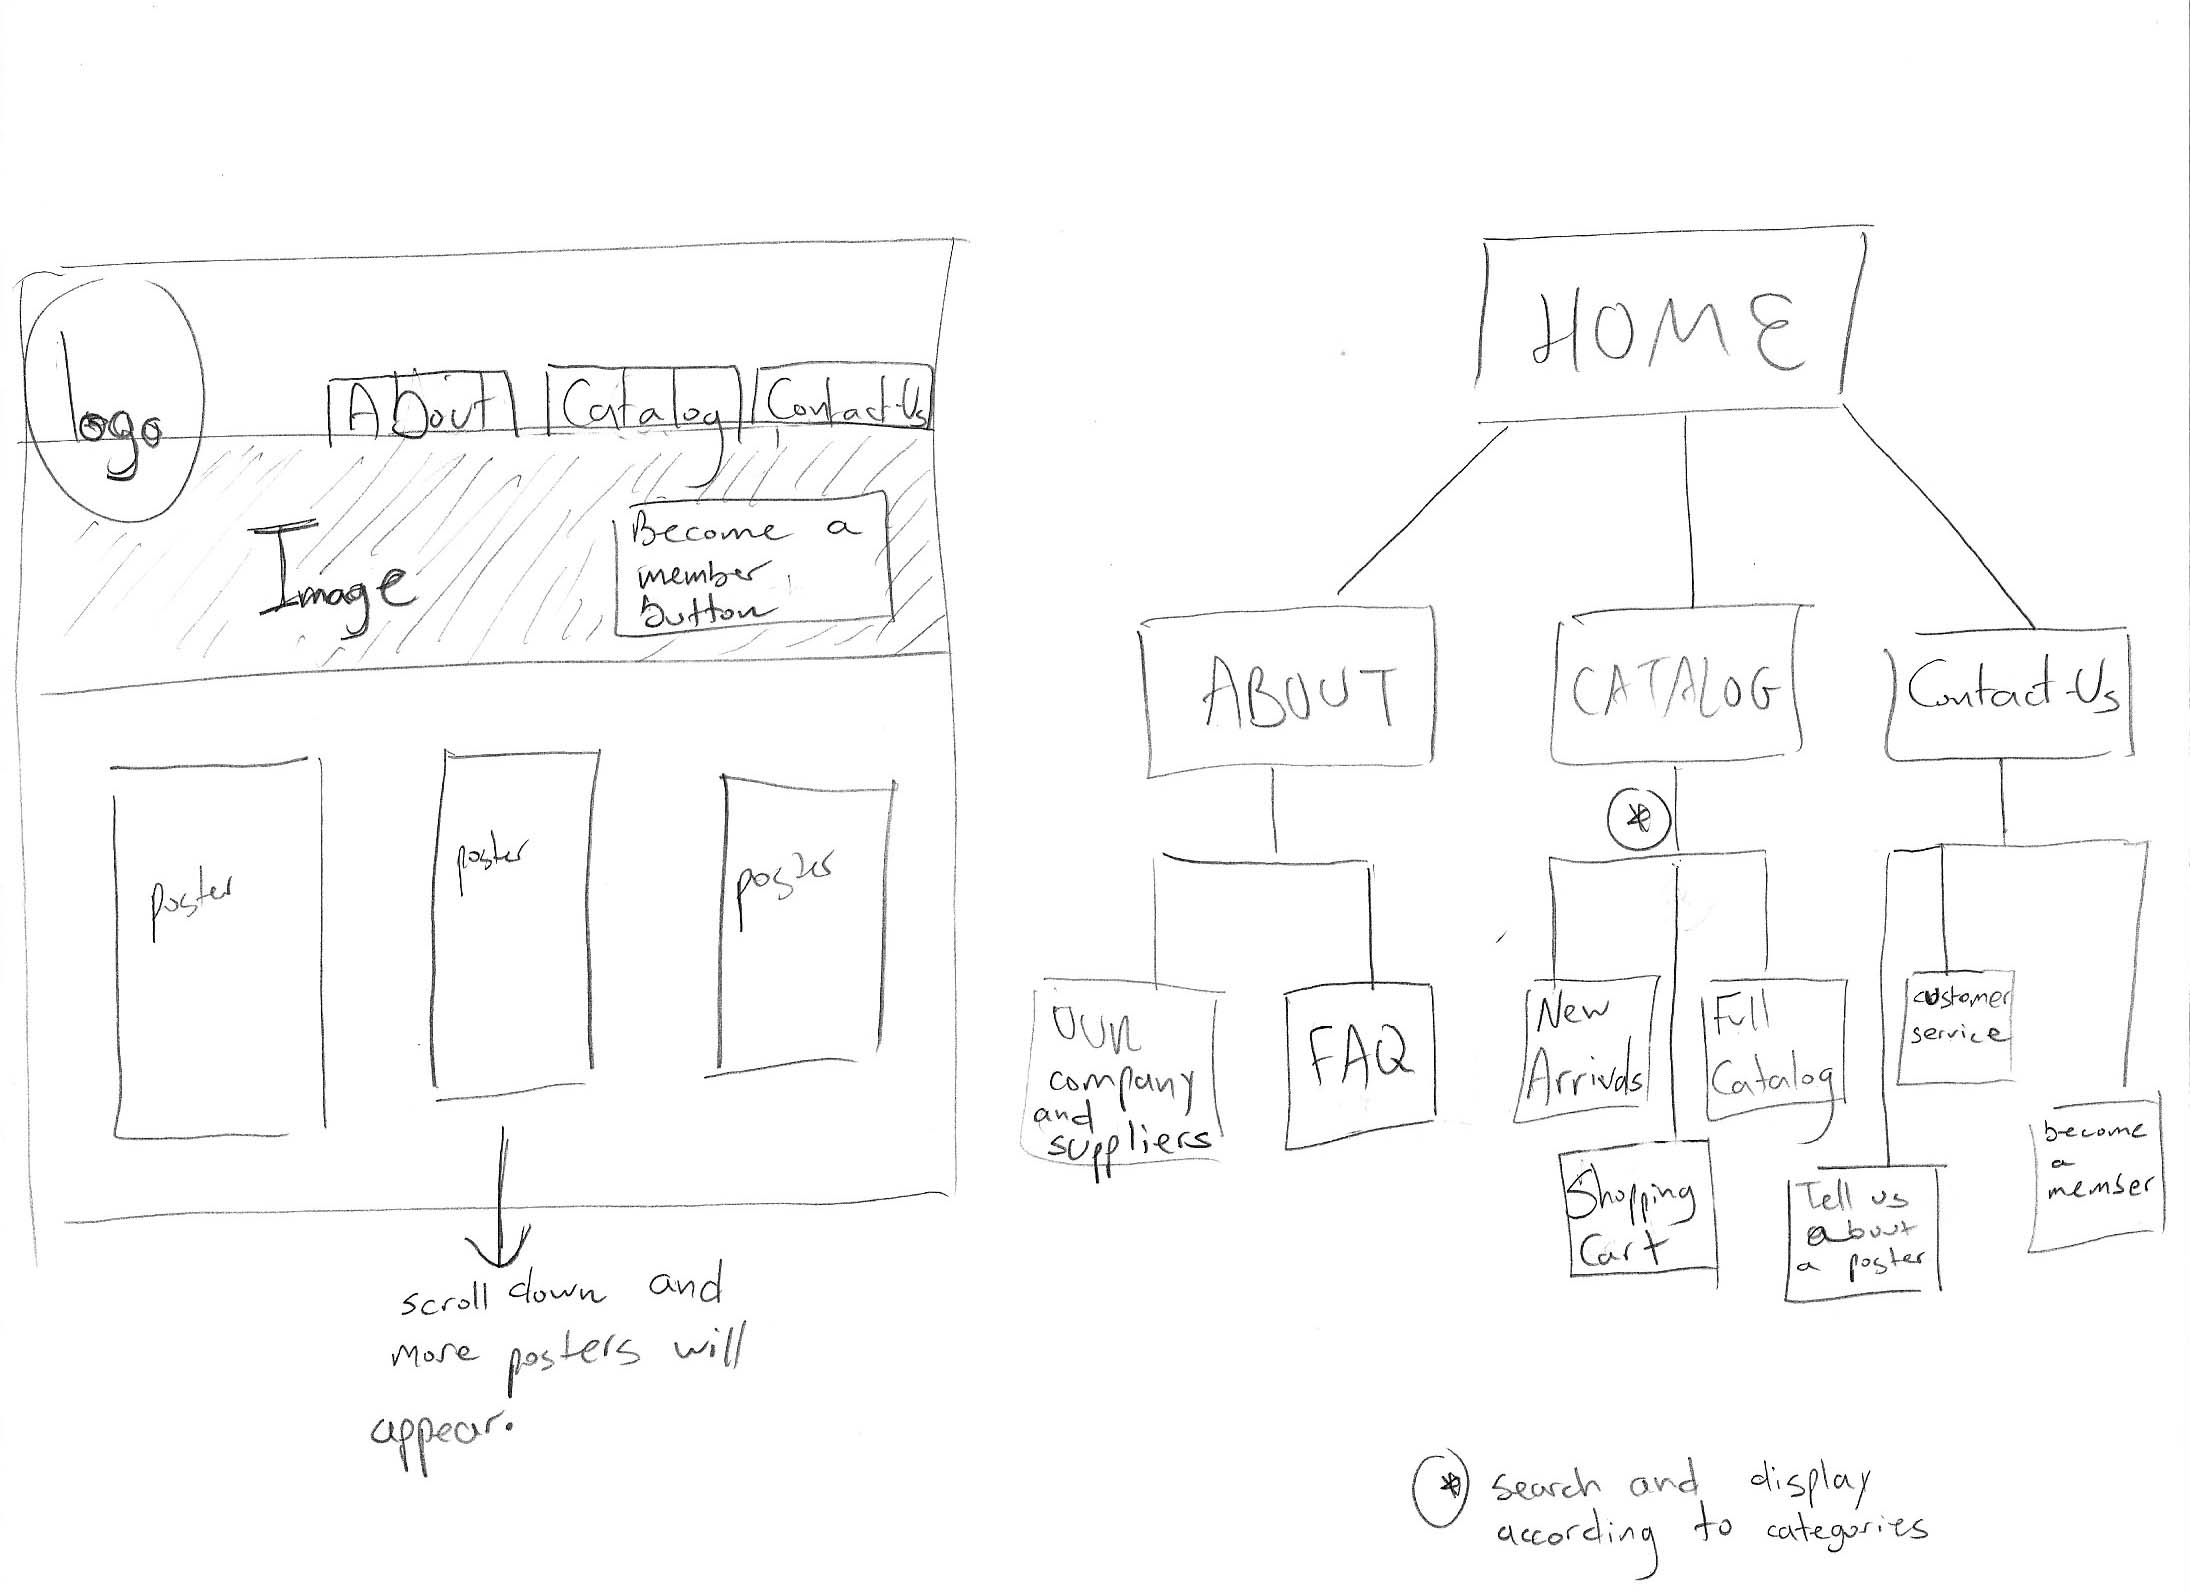 logo
About
Catalog
Contact-Us
Image
Become a
member
button
poster
poster
poster
scroll down and
more posters will
appear.
HOME
ABOUT
CATALOG
Contact-Us
*
OUR
company
and
suppliers
FAQ
New
Arrivals
Full
Catalog
Shopping
Cart
customer
service
Tell us
about
a poster
become
a
member
* search and display
according to categories